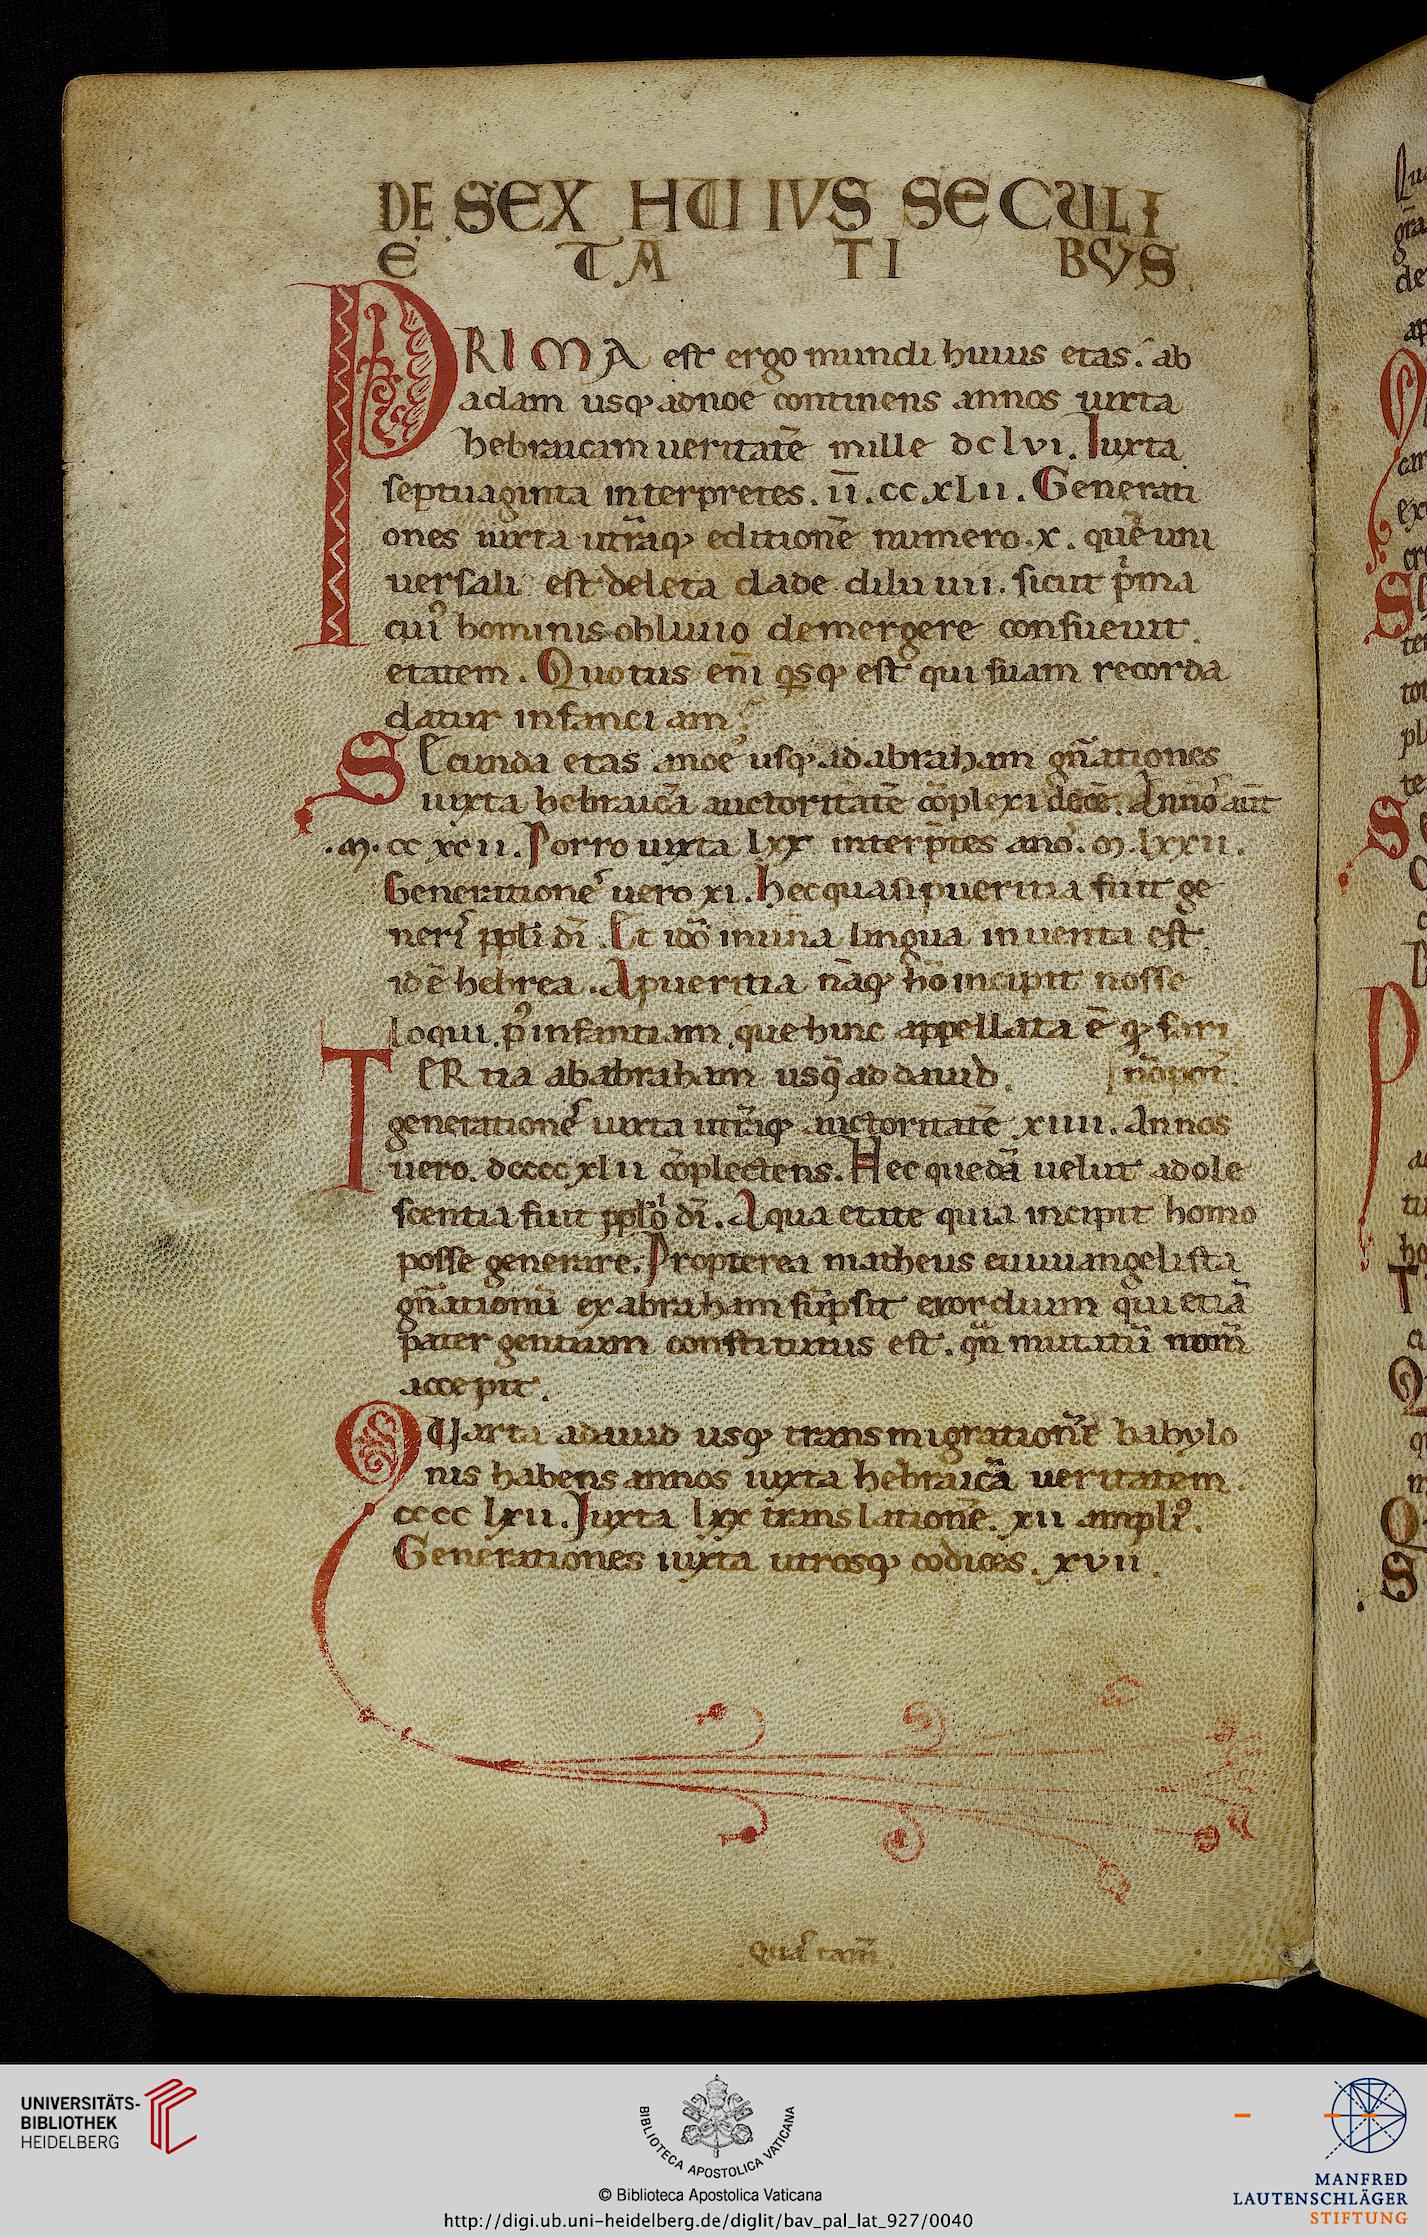 DE SEX HUIUS SECULI
ETATIBUS
PRIMA est ergo mundi huius etas. ab
adam usq; adnoe continens annos iuxta
hebraicam ueritatē mille dclvi. Iuxta
septuaginta interpretes. īī. cc.xlii. Generati
ones iuxta utrāq; editionē numero. x. quē uni
uersali est deleta clade diluuii. sicut p̄ma
cui᷒ hominis obliuio demergere consueuit.
etatem. Quotus eni̅ q̅sq; est qui suam recorda
datur infanciam?
SEcunda etas anoe usq; ad abraham gn̄ationes
iuxta hebraicā auctoritatē cōplexa decē. Anno᷒ aūt
.m. cc xcii. Porro iuxta lxx interp̄tes ano᷒. m. lxxii.
Generatione᷒ uero xi. Hec quasi pueritia fuit ge
neri᷒ ppl̄i dī. Et idō inuna lingua inuenta est.
id ē hebrea. Apueritia nāq; hō incipit nosse
loqui. p᷒ infantiam, que hinc appellata ē q; fari
nō pot̄.
TERtia ababraham usq; ad dauid.
generatione᷒ iuxta utrāq; auctoritatē xiiii. Annos
uero. dccccxlii cōplectens. Hec quedā uelut adole
scentia fuit pplo᷒ dī. Aqua etate quia incipit homo
posse generare. Propterea matheus euuuangelista
gn̄ationū ex abraham sūpsit exordium qui etiā
pater gentium constitutus est. qn̄ mutatū nom̄
accepit.
QUarta adauid usq; transmigrationē babylo
nis habens annos iuxta hebraicā ueritatem.
cccc lxii. Iuxta lxx translationē. xii ampli᷒.
Generationes iuxta utrosq; codices. xvii.
Qua᷒ tam̄
UNIVERSITÄTS-
BIBLIOTHEK
HEIDELBERG
BIBLIOTECA APOSTOLICA VATICANA
© Biblioteca Apostolica Vaticana
http://digi.ub.uni-heidelberg.de/diglit/bav_pal_lat_927/0040
MANFRED
LAUTENSCHLÄGER
STIFTUNG